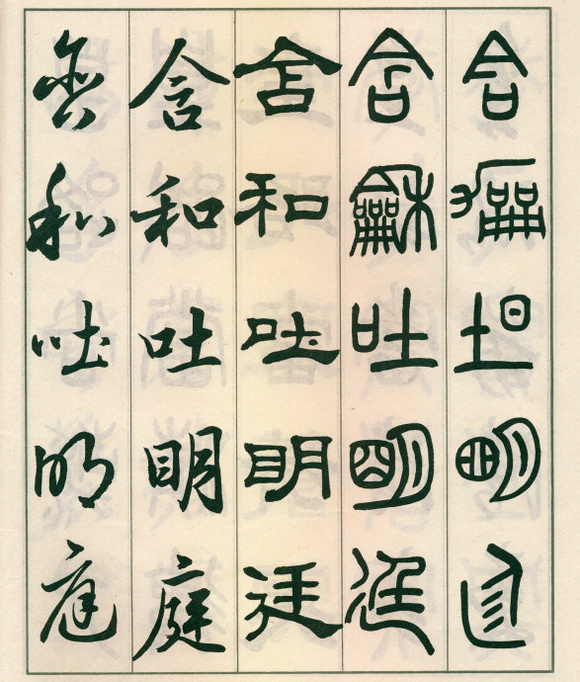 含明
含龢吐朙廷
含和吐明廷
含和吐明庭
含和吐明庭